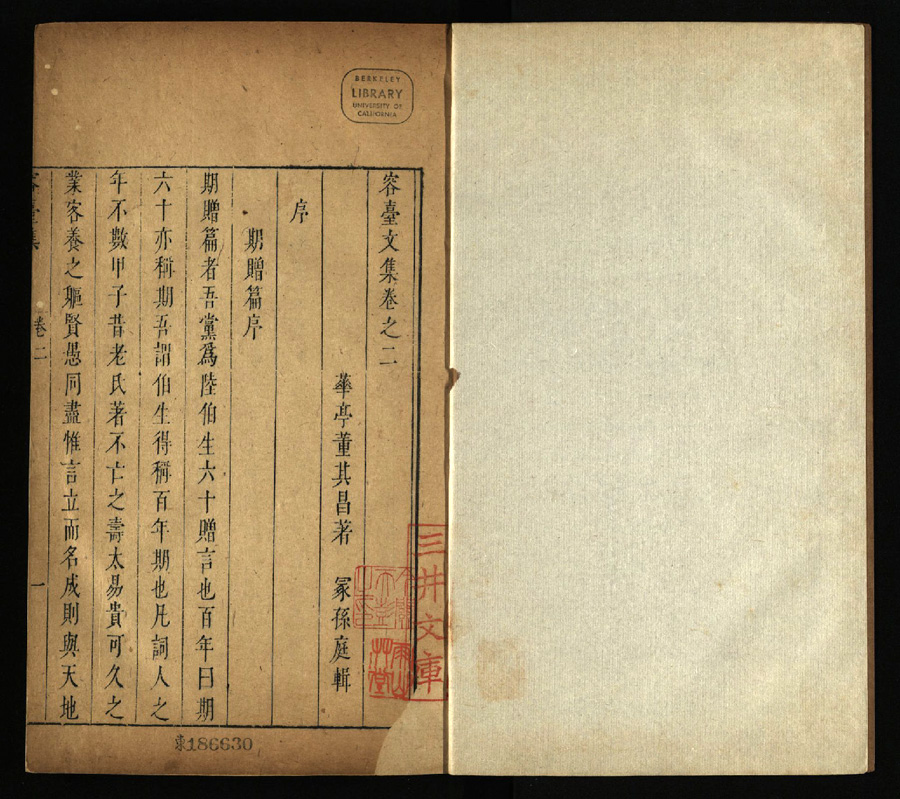 BERKELEY
LIBRARY
UNIVERSITY OF
CALIFORNIA
容臺文集卷之二
華亭董其昌著　冢孫庭輯
序
期贈篇序
期贈篇者吾黨爲陸伯生六十贈言也百年曰期
六十亦稱期吾謂伯生得稱百年期也凡詞人之
年不數甲子昔老氏著不亡之壽太易貴可久之
業客養之軀賢愚同盡惟言立而名成則與天地
卷二
一
三井文庫
東186630